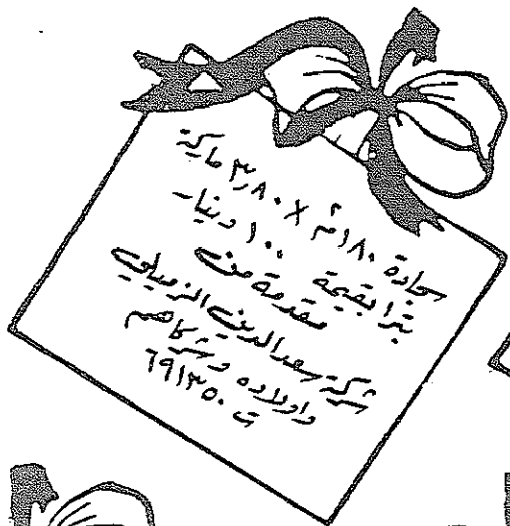 سجادة ١٨٠م X ٣٨٠ ماركة
بترا بقيمة ١٠٠ دينار
مقدمة من
شركة سعد الدين الزميلي
واولاده وشركاهم
ت ٦٩١٣٥٠